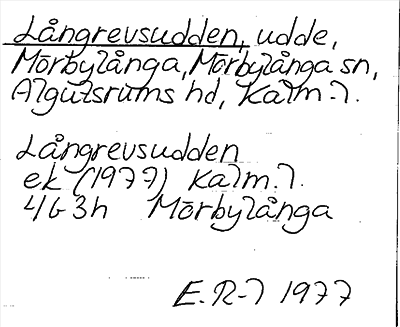 Långrevsudden, udde,
Mörbylånga, Mörbylånga sn,
Algutsrums hd, Kalm. l.
Långrevsudden
ek (1977) Kalm. l.
4G 3h Mörbylånga
E. R-l 1977